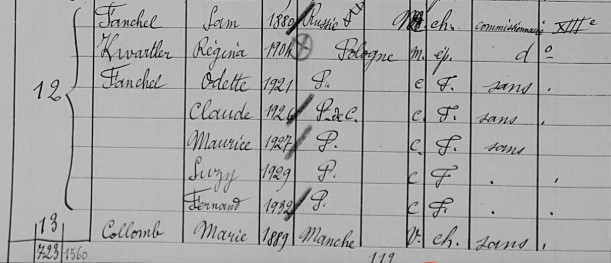 12 Fanchel Sam 1880 Russie M. ch. commissionnaire XIIIe
Kwartler Régina 1904 Pologne m. ép. do
Fanchel Odette 1921 P. c F. sans .
Claude 1926 P. de C. c. F. sans .
Maurice 1927 P. c. F. sans
Suzy 1929 P. c F . .
Fernand 1932 P. c F. . .
13 Collomb Marie 1889 Manche V. ch. sans .
723 1560